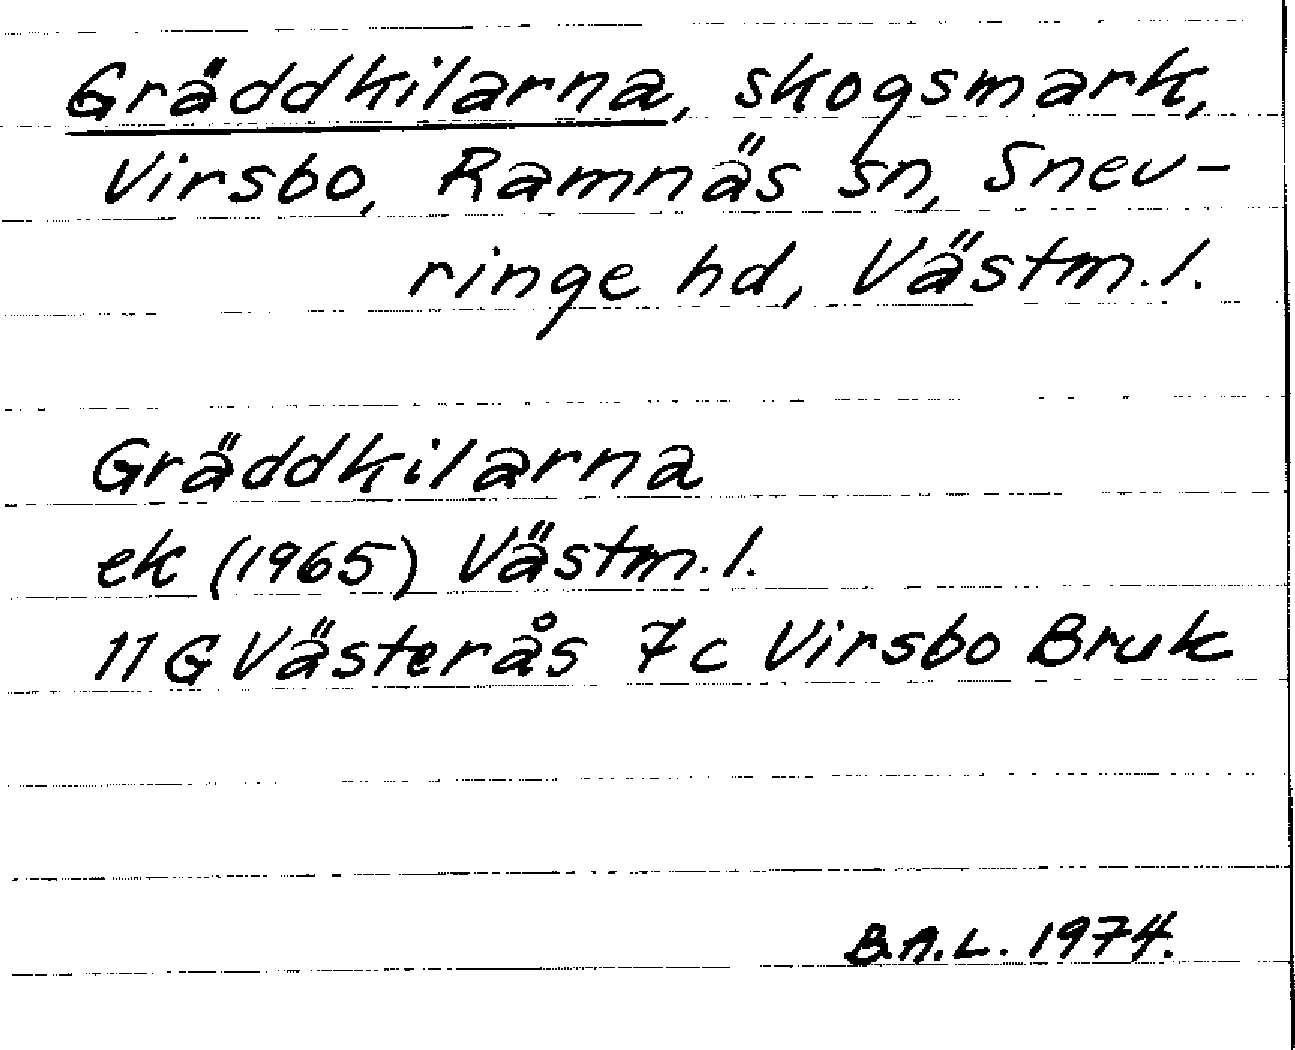 Gräddkilarna, skogsmark,
Virsbo, Ramnäs sn, Snev-
ringe hd, Västm. l.
Gräddkilarna
ek (1965) Västm. l.
11 G Västerås 7c Virsbo Bruk
B.A.L. 1974.